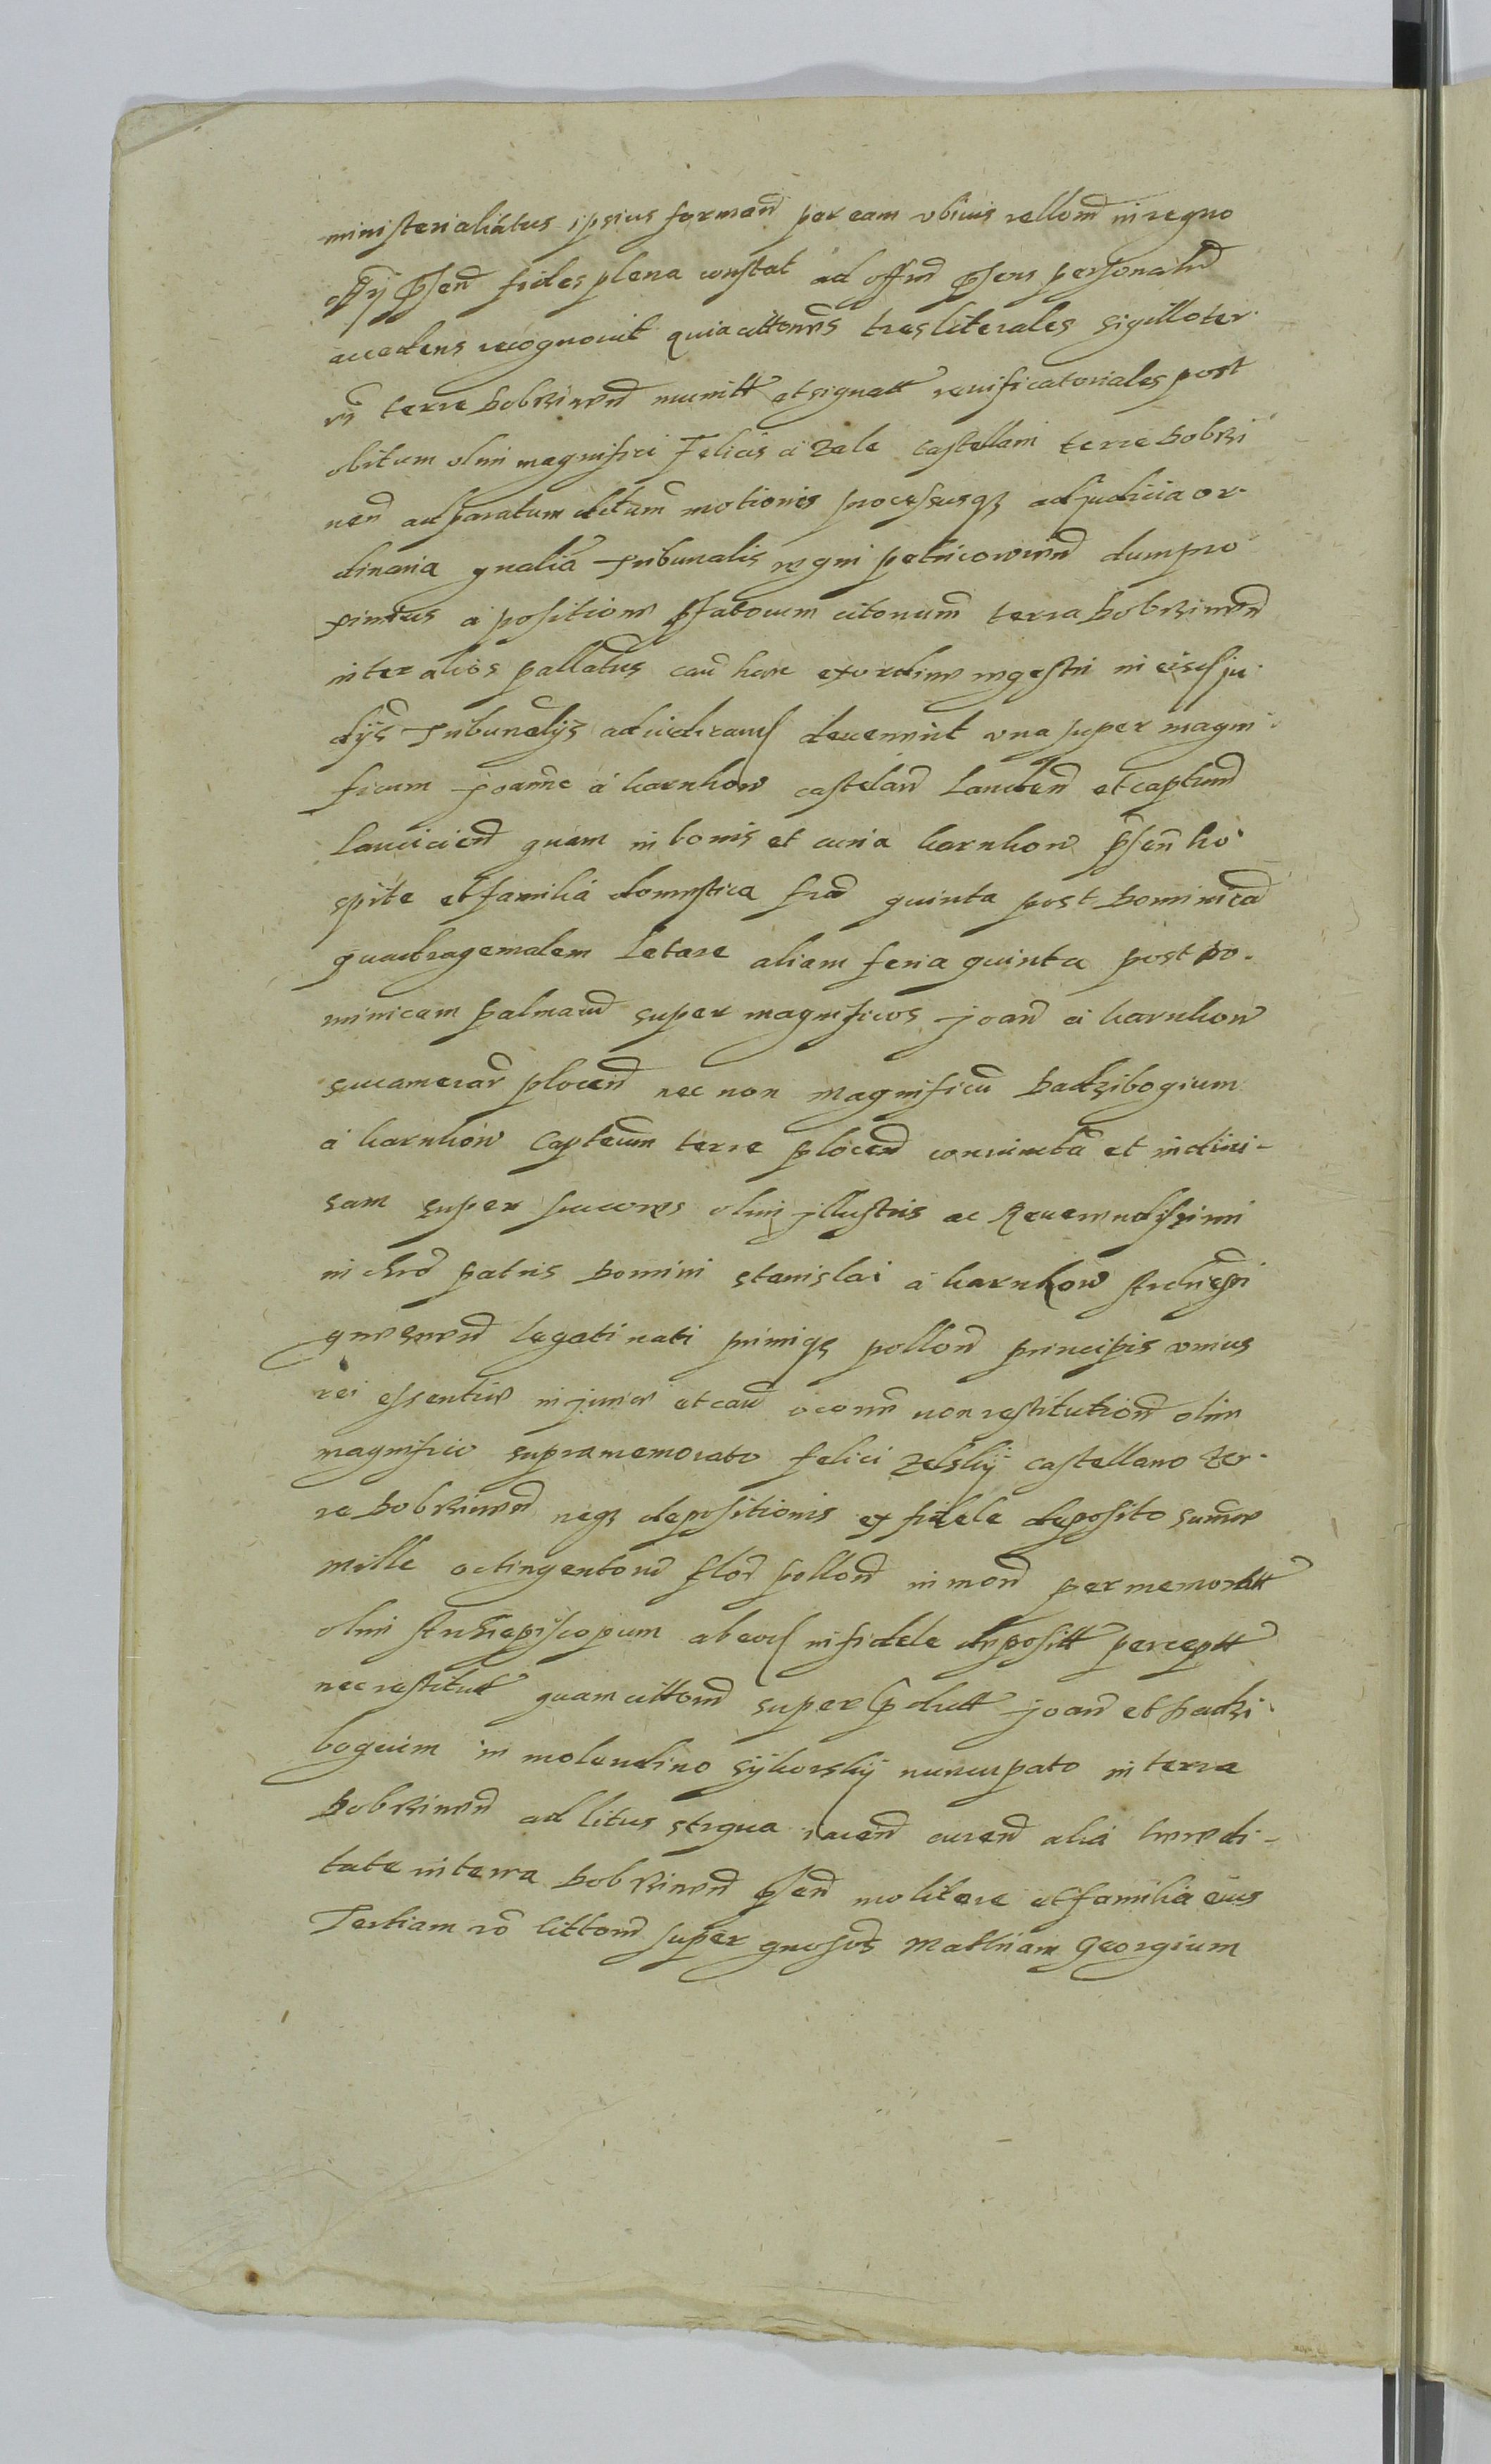 ministerialiatus ipsius formand per eam ubivis relland in regno
offij pnsen fides plena constat ad offm pnsens personalr
accedens recognovit quia cittones tres literales sigillo ter-
rē terre Dobrzinen munitt et signatt revificatoriales post
obitum olim magnifici Felicis a Zale castellani terre Dobrzi
nen ad paratum dictam motionis processusqz ad judicia or-
dinaria gnalia Tribunalis regni Petricovien dum pro
ximius a positione pfatorum citonum terra Dobrzinen
inter alios pallatus cau hanc ex ordine regestri in eisd ju-
dijs Tribunalijs adiudicand devenerint una super magni-
ficum Joanne a Karnkow castelan Landen et captum
Lancicien quam in bonis et curia Karnkow pnsen ho
spite et familia domestica fra quinta post Dominica
quadragemalem Letare aliam feria quinta post Do-
minicam Palmaru super magnificos Joan a Karnkow
succamerar Plocen nec non magnificu Padzibogium
a Karnkow Capteum terre Plocen coniuncta et indivi-
sam super succores olim jllustris ac Reuerendissimi
in chro patris Domini Stanislai a Karnkow Archiepi
gnesnen legati nati primiqz pollon principis unius
rei essentie in juncti et cau ocone non restitution olim
magnifico supramemorato Felici Zelskij castellano ter-
re Dobrzinen neqz depositionis ex fidele deposito summe
mille octingentoru flor pollon in mon per memoratt
olim Archiepiscopum ab eod in fidele depositt perceptt
nec restitut quam cittond super pdictt Joan et Padzi-
bogium in molendino Sijkorskij nuncupato in terra
Dobrzinen ad litus strgua iacen curend alia heredi-
tate in terra Dobrzinen pnsen molitore et familia eius
Tertiam ro littond super gnosos Mathiam Georgium